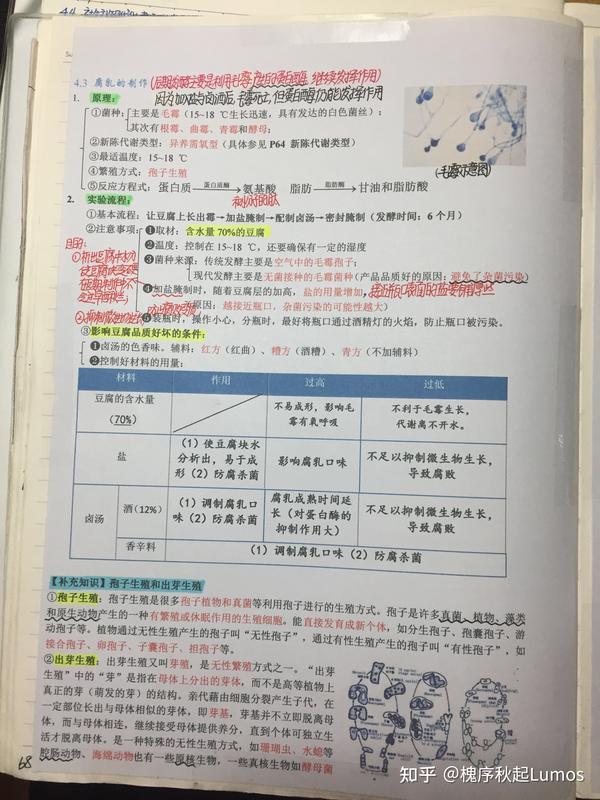 4.3 腐乳的制作(后期发酵主要是利用毛霉产生的蛋白酶继续发挥作用)
1. 原理: 因为加盐与卤酒后,毛霉死亡,但蛋白酶仍能发挥作用
①菌种: 主要是毛霉(15~18 ℃生长迅速,具有发达的白色菌丝);
其次有根霉、曲霉、青霉和酵母;
②新陈代谢类型:异养需氧型(具体参见 P64 新陈代谢类型)
③最适温度:15~18 ℃
④繁殖方式:孢子生殖
(毛霉示意图)
⑤反应方程式:蛋白质 蛋白质酶 氨基酸 脂肪 脂肪酶 甘油和脂肪酸
2. 实验流程:
①基本流程:让豆腐上长出霉→加盐腌制→配制卤汤→密封腌制(发酵时间:6 个月)
②注意事项: ❶取材:含水量 70%的豆腐
目的:
❷温度:控制在 15~18 ℃,还要确保有一定的湿度
❸菌种来源:传统发酵主要是空气中的毛霉孢子;
现代发酵主要是无菌接种的毛霉菌种(产品品质好的原因:避免了杂菌污染)
❹加盐腌制时,随着豆腐层的加高,盐的用量增加,
(原因:越接近瓶口,杂菌污染的可能性越大)
❺装瓶时,操作小心,分瓶时,最好将瓶口通过酒精灯的火焰,防止瓶口被污染。
③影响豆腐品质好坏的条件:
❶卤汤的色香味。辅料:红方(红曲)、糟方(酒糟)、青方(不加辅料)
❷控制好材料的用量:
材料 作用 过高 过低
豆腐的含水量(70%) 不易成形,影响毛霉有氧呼吸 不利于毛霉生长,代谢离不开水。
盐 (1)使豆腐块水分析出,易于成形(2)防腐杀菌 影响腐乳口味 不足以抑制微生物生长,导致腐败
卤汤 酒(12%) (1)调制腐乳口味(2)防腐杀菌 腐乳成熟时间延长(对蛋白酶的抑制作用大) 不足以抑制微生物生长,导致腐败
香辛料 (1)调制腐乳口味(2)防腐杀菌
【补充知识】孢子生殖和出芽生殖
①孢子生殖:孢子生殖是很多孢子植物和真菌等利用孢子进行的生殖方式。孢子是许多真菌、植物、藻类
和原生动物产生的一种有繁殖或休眠作用的生殖细胞。能直接发育成新个体,如分生孢子、孢囊孢子、游
动孢子等。植物通过无性生殖产生的孢子叫“无性孢子”,通过有性生殖产生的孢子叫“有性孢子”,如
接合孢子、卵孢子、子囊孢子、担孢子等。
②出芽生殖:出芽生殖又叫芽殖,是无性繁殖方式之一。“出芽
生殖”中的“芽”是指在母体上分出的芽体,而不是高等植物上
真正的芽(萌发的芽)的结构。亲代藉由细胞分裂产生子代,在
一定部位长出与母体相似的芽体,即芽基,芽基并不立即脱离母
体,而与母体相连,继续接受母体提供养分,直到个体可独立生
活才脱离母体。是一种特殊的无性生殖方式,如珊瑚虫、水螅等
腔肠动物、海绵动物也有一些原核生物,一些真核生物如酵母菌
68
知乎 @槐序秋起Lumos